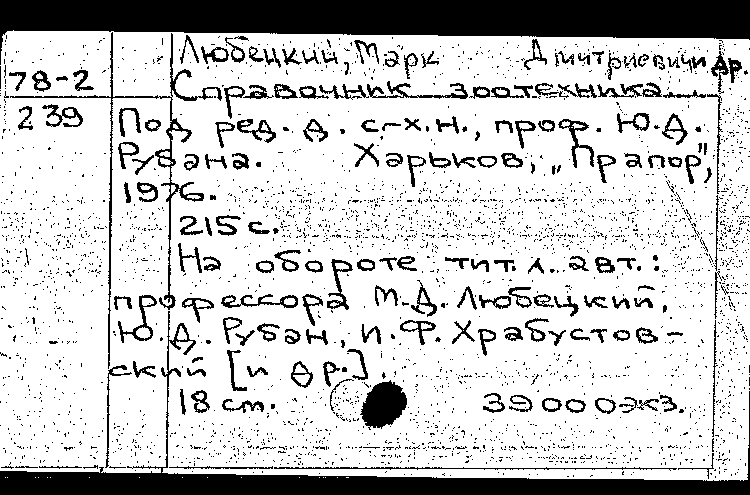 Любецкий, Марк Дмитриевич и др.
78-2
Справочник зоотехника...
239
Под ред. д. с-х.н., проф. Ю.Д.
Рубана. Харьков, „Прапор",
1976.
215 с.
На обороте тит. л. авт.:
профессора М.Д. Любецкий,
Ю.Д. Рубан, И.Ф. Храбустов-
ский [и др.].
18 см. 39000экз.